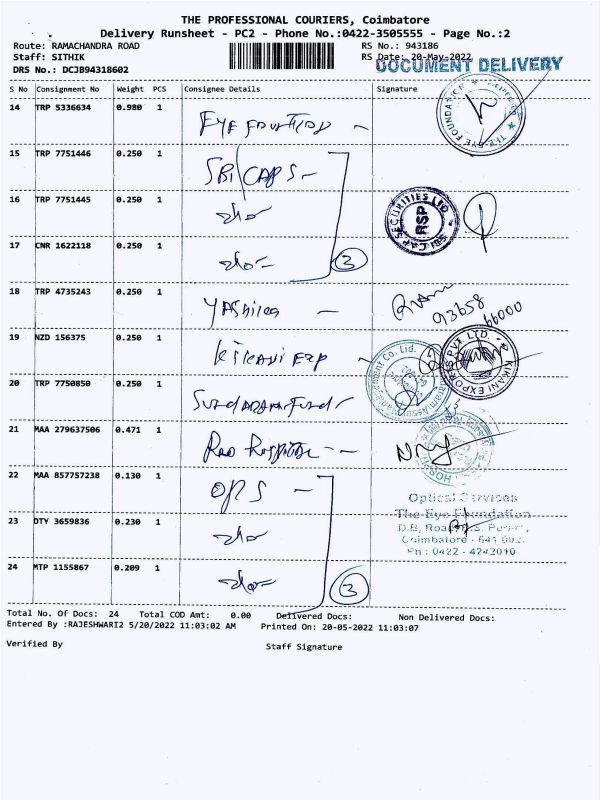 THE PROFESSIONAL COURIERS, Coimbatore
Delivery Runsheet - PC2 - Phone No.:0422-3505555 - Page No.:2
Route: RAMACHANDRA ROAD RS No.: 943186
Staff: SITHIK RS Date: 20-May-2022
DOCUMENT DELIVERY
DRS No.: DCJB94318602
S No Consignment No Weight PCS Consignee Details Signature
14 TRP 5336634 0.980 1
THE EYE FOUNDATION
15 TRP 7751446 0.250 1 SBI CAPS -
16 TRP 7751445 0.250 1 -do-
SBI CAP SECURITIES LTD
RSP
17 CNR 1622118 0.250 1 -do- 3
18 TRP 4735243 0.250 1 Yashika - 93658 66000
19 NZD 156375 0.250 1 Kikani Exp -
KIKANI EXPORTS PVT LTD.
Co. Ltd.
20 TRP 7750850 0.250 1 Sundaram Fund
21 MAA 279637506 0.471 1 Rao Hospital - -
22 MAA 857757238 0.130 1 OPS -
Optical Services
The Eye Foundation
23 DTY 3659836 0.230 1 -do-
D.B. Road, R.S. Puram,
Coimbatore - 641 002.
Ph : 0422 - 4242010
24 MTP 1155867 0.209 1 -do- 3
Total No. Of Docs: 24 Total COD Amt: 0.00 Delivered Docs: Non Delivered Docs:
Entered By :RAJESHWARI2 5/20/2022 11:03:02 AM Printed On: 20-05-2022 11:03:07
Verified By Staff Signature